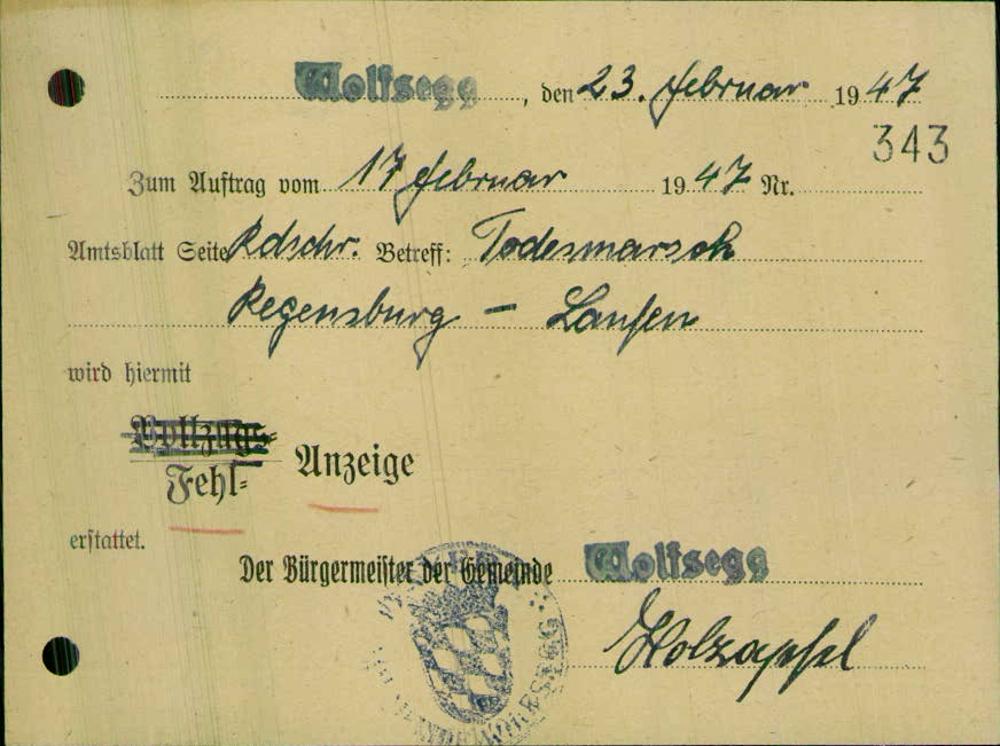 Wolfsegg, den 23. Februar 1947
343
Zum Auftrag vom 17 Februar 1947 Nr.
Amtsblatt Seite Rdschr. Betreff: Todesmarsch
Regensburg – Laufen
wird hiermit
Vollzugs-
Fehl- Anzeige
erstattet.
Der Bürgermeister der Gemeinde Wolfsegg
Holzapfel